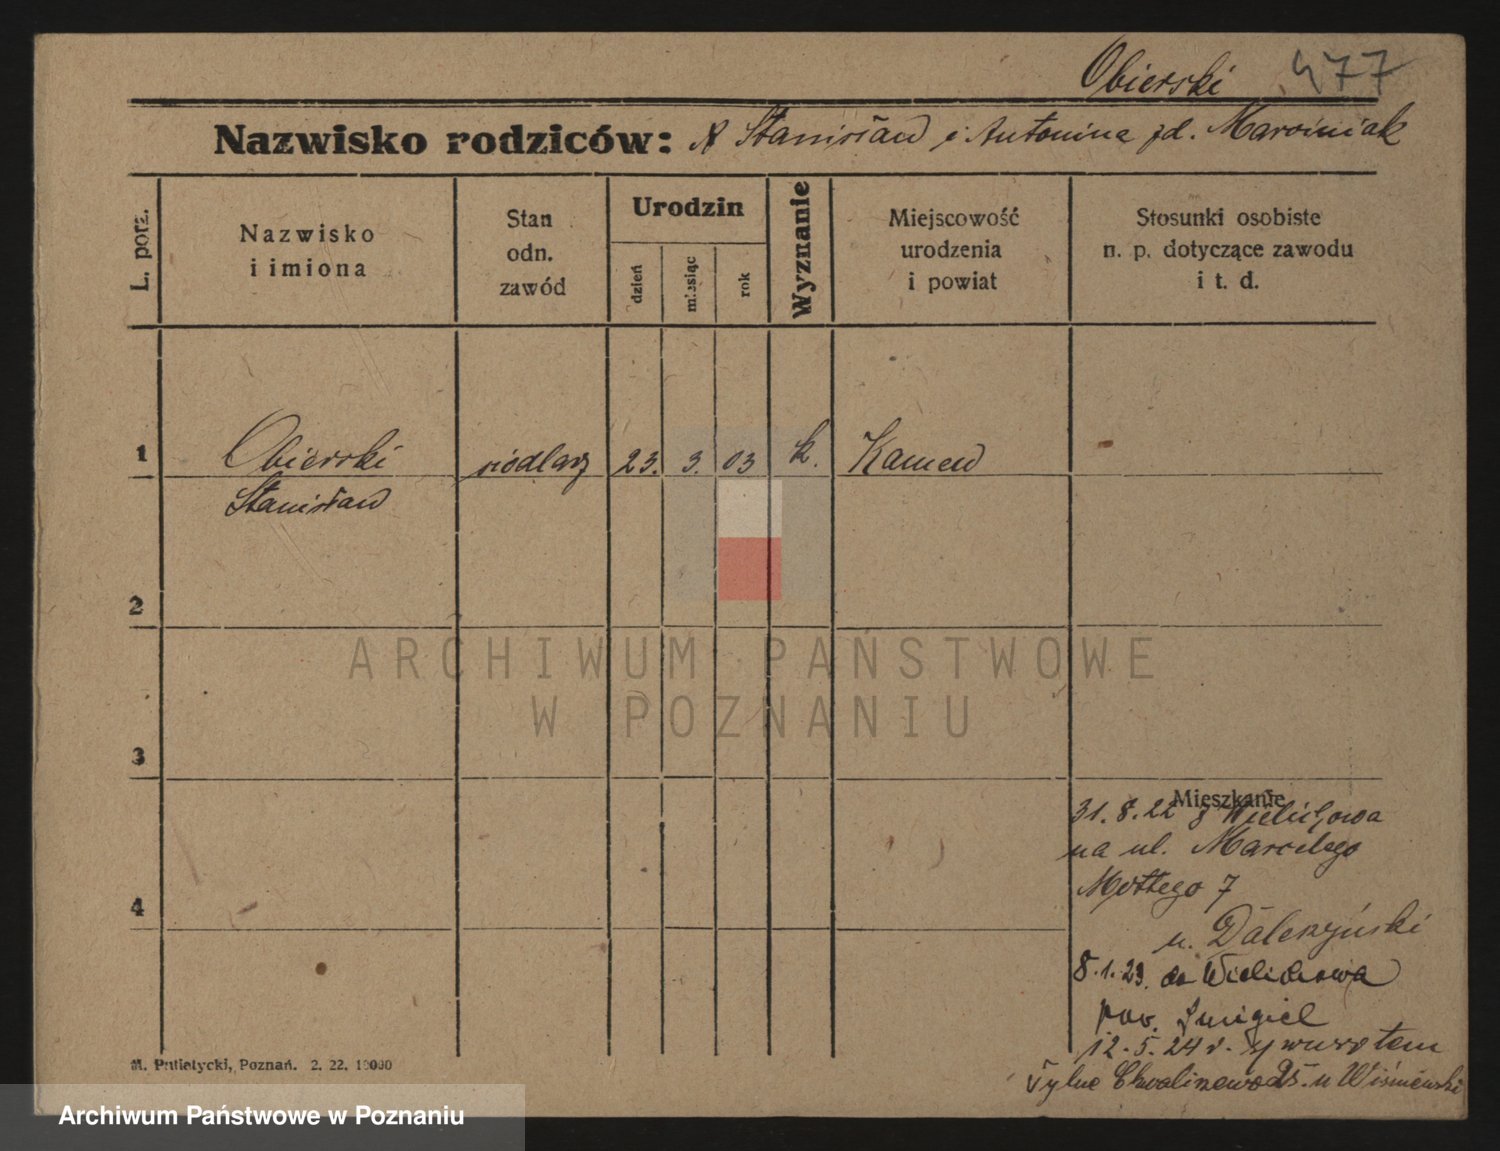 Obierski 477
Nazwisko rodziców: Stanisław i Antonina zd. Marciniak
L. porz.
Nazwisko
i imiona
Stan
odn.
zawód
Urodzin
dzień
miesiąc
rok
Wyznanie
Miejscowość
urodzenia
i powiat
Stosunki osobiste
n. p. dotyczące zawodu
i t. d.
1 Obierski siodlarz 23. 3. 03 k.
Stanisław
2
ARCHIWUM PAŃSTWOWE
W POZNANIU
3
Mieszkanie
31.8.22 z
na ul. Marcelego
Mottego 7
4
u.
8.1.23. do Wielichowa
pow. Śmigiel
12.5.24 r.
Tylne 25. u Wiśniewski
M. Putiatycki, Poznań. 2. 22. 10000
Archiwum Państwowe w Poznaniu